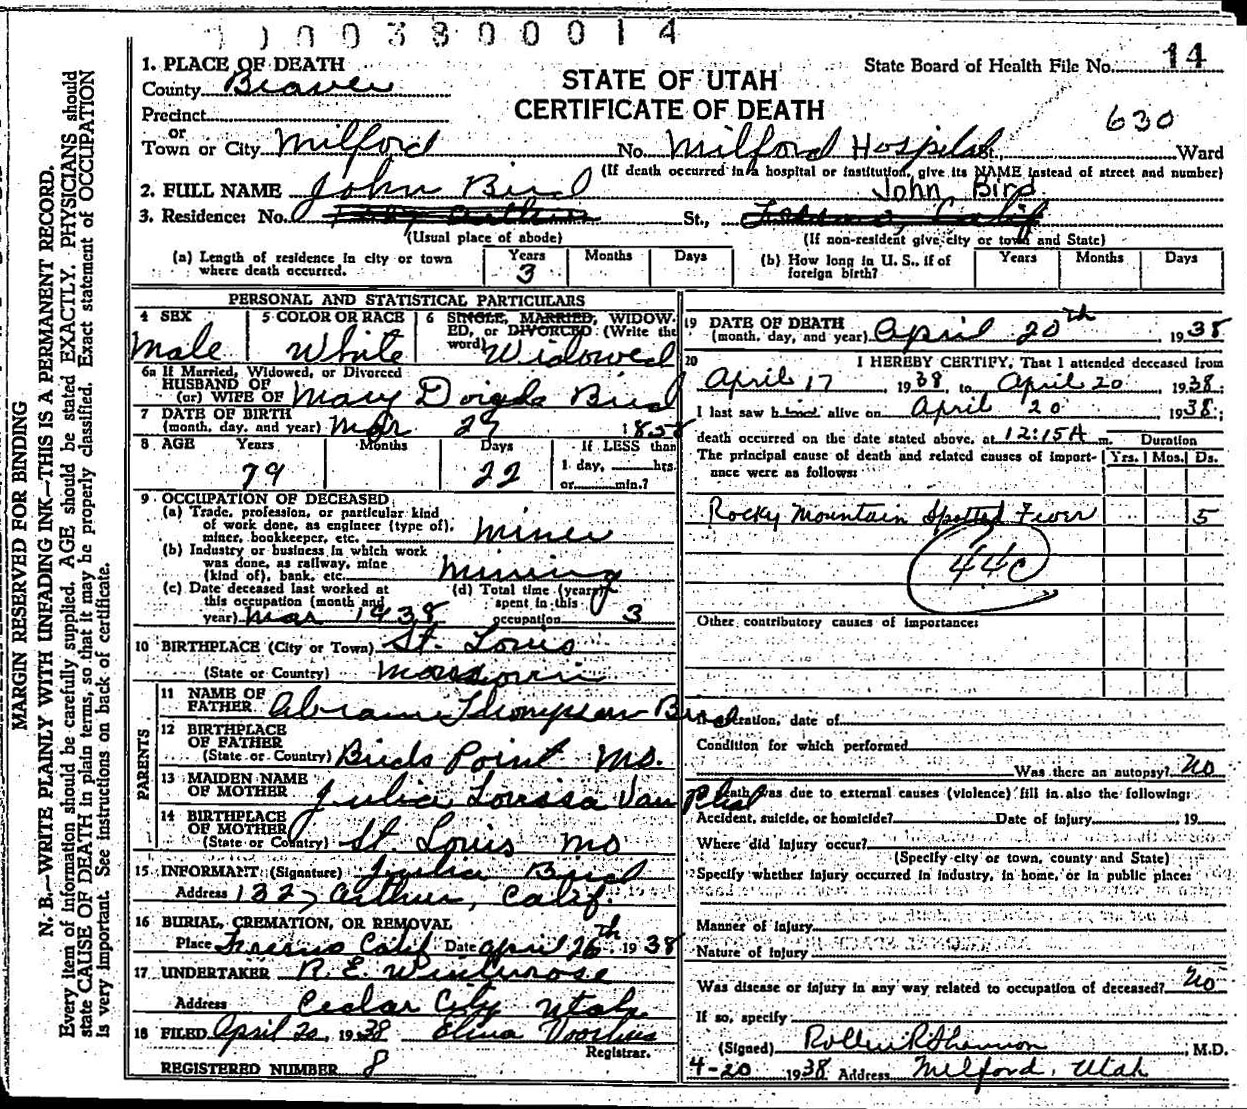 1 0 0 3 8 0 0 0 1 4
MARGIN RESERVED FOR BINDING
N. B.—WRITE PLAINLY WITH UNFADING INK—THIS IS A PERMANENT RECORD.
Every item of information should be carefully supplied. AGE should be stated EXACTLY. PHYSICIANS should
state CAUSE OF DEATH in plain terms, so that it may be properly classified. Exact statement of OCCUPATION
is very important. See instructions on back of certificate.
State Board of Health File No. 14
STATE OF UTAH
CERTIFICATE OF DEATH
630
1. PLACE OF DEATH
County Beaver
Precinct
or
Town or City Milford No. Milford Hospital St., Ward
(If death occurred in a hospital or institution, give its NAME instead of street and number)
2. FULL NAME John Bird John Bird
3. Residence: No. St., Calif
(Usual place of abode) (If non-resident give city or town and State)
(a) Length of residence in city or town where death occurred. Years 3 Months Days
(b) How long in U. S., if of foreign birth? Years Months Days
PERSONAL AND STATISTICAL PARTICULARS
4 SEX Male
5 COLOR OR RACE White
6 SINGLE, MARRIED, WIDOW-
ED, or DIVORCED (Write the
word) Widowed
6a If Married, Widowed, or Divorced
HUSBAND OF
(or) WIFE OF Mary Bird
7 DATE OF BIRTH
(month, day, and year) Mar 29 1858
8 AGE Years 79 Months Days 22 If LESS than
1 day, hrs.
or min.?
9 OCCUPATION OF DECEASED
(a) Trade, profession, or particular kind
of work done, as engineer (type of),
miner, bookkeeper, etc. Miner
(b) Industry or business in which work
was done, as railway, mine
(kind of), bank, etc. Mining
(c) Date deceased last worked at
this occupation (month and
year) Mar 1938
(d) Total time (years)
spent in this
occupation 3
10 BIRTHPLACE (City or Town) St. Louis
(State or Country) Missouri
PARENTS
11 NAME OF
FATHER Abram Thompson Bird
12 BIRTHPLACE
OF FATHER
(State or Country) Birds Point Mo.
13 MAIDEN NAME
OF MOTHER Julia Van
14 BIRTHPLACE
OF MOTHER
(State or Country) St. Louis Mo
15 INFORMANT (Signature) Julia Bird
Address 1327 Arthur, Calif.
16 BURIAL, CREMATION, OR REMOVAL
Place Fresno Calif Date April 26th 1938
17 UNDERTAKER R. E.
Address Cedar City Utah
18 FILED April 20, 1938
Registrar.
REGISTERED NUMBER 8
19 DATE OF DEATH
(month, day, and year) April 20th 1938
20 I HEREBY CERTIFY, That I attended deceased from
April 17 1938 to April 20 1938;
I last saw him alive on April 20 1938;
death occurred on the date stated above, at 12:15 A m. Duration
The principal cause of death and related causes of import-
ance were as follows: Yrs. Mos. Ds.
Rocky Mountain Spotted Fever 5
44c
Other contributory causes of importance:
If operation, date of
Condition for which performed
Was there an autopsy? No
If death was due to external causes (violence) fill in also the following:
Accident, suicide, or homicide? Date of injury 19
Where did injury occur?
(Specify city or town, county and State)
Specify whether injury occurred in industry, in home, or in public place:
Manner of injury
Nature of injury
Was disease or injury in any way related to occupation of deceased? No
If so, specify
(Signed) M.D.
4-20 1938 Address Milford, Utah